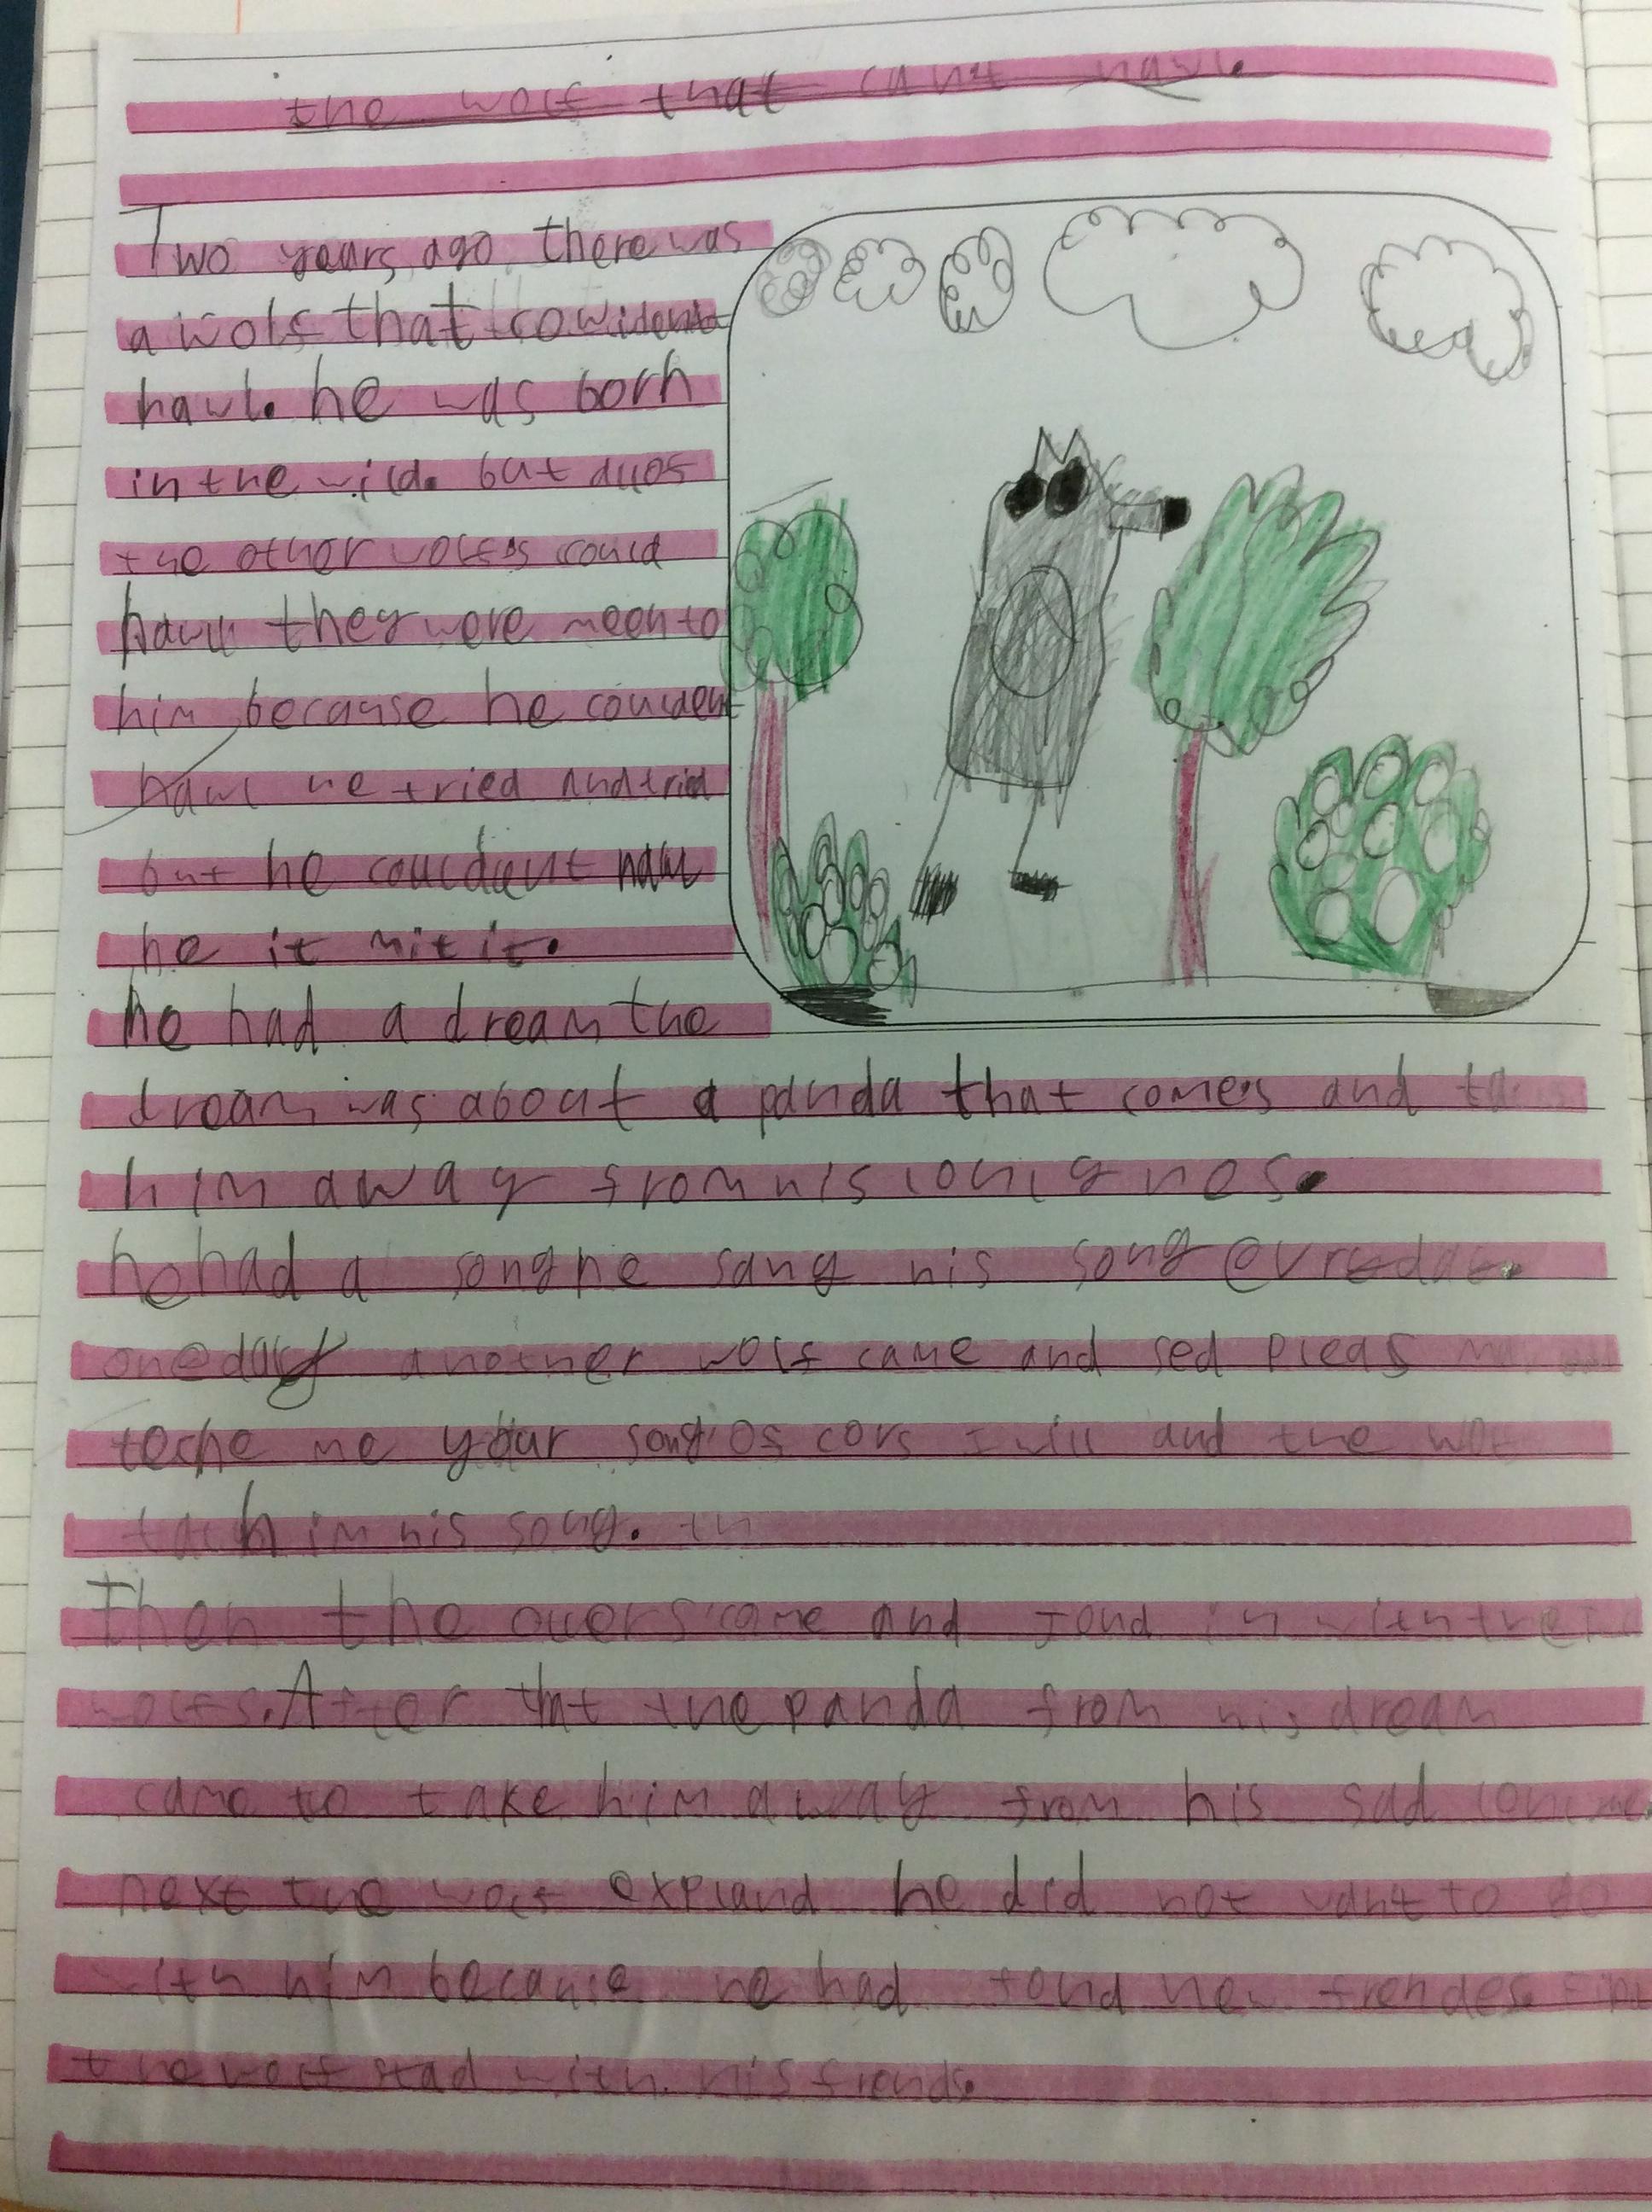 the wolf that cant hawl.
Two years ago there was
a wolf that
hawl. he was born
in the wild. but
the other wolfs could
hawl they were meen to
him because he couldent
hawl he tried and tried
but he couldent hawl
he it
he had a dream the
dream was about a panda that comes and
him away from his
he had a song he sang his song
one day another wolf came and sed pleas
teche me your song of cors I will and the
tach im his song. th
Then the came and in with
wolfs. After that the panda from his dream
came to take him away from his sad
next the wolf expland he did not want to go
with him because he had fond new frendes.
the wolf stad with his friends.